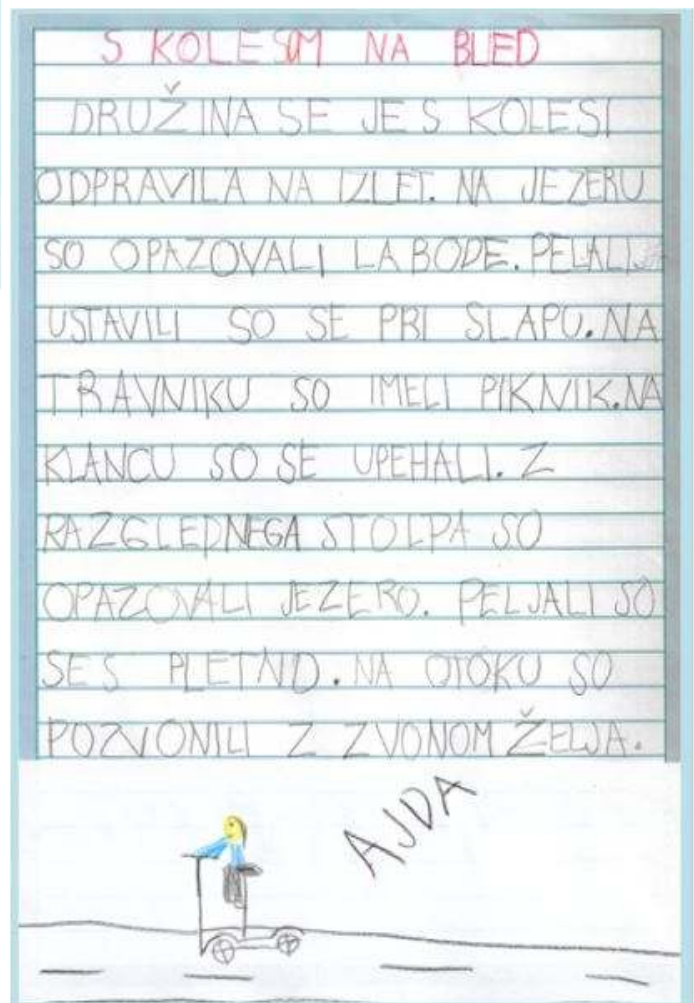 S KOLESOM NA BLED
DRUŽINA SE JE S KOLESI
ODPRAVILA NA IZLET. NA JEZERU
SO OPAZOVALI LABODE.
USTAVILI SO SE PRI SLAPU. NA
TRAVNIKU SO IMELI PIKNIK. NA
KLANCU SO SE UPEHALI. Z
RAZGLEDNEGA STOLPA SO
OPAZOVALI JEZERO. PELJALI SO
SE S PLETNO. NA OTOKU SO
POZVONILI Z ZVONOM ŽELJA.
AJDA